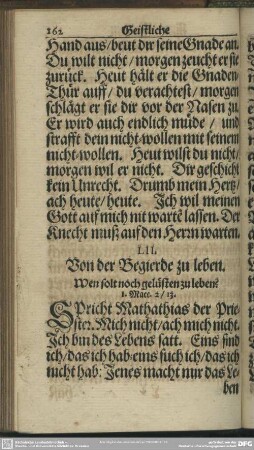 262 Geistliche
Hand aus/beut dir seine Gnade an.
Du wilt nicht/morgen zeucht er sie
zurück. Heut hält er die Gnaden-
Thür auff/ du verachtest/ morgen
schlägt er sie dir vor der Nasen zu.
Er wird auch endlich müde/ und
strafft dein nicht-wollen mit seinem
nicht-wollen. Heut wilst du nicht/
morgen wil er nicht. Dir geschicht
kein Unrecht. Drumb mein Hertz/
ach heute/heute. Ich wil meinen
Gott auf mich nit wartẽ lassen. Der
Knecht muß auf den Herrn warten.
LII.
Von der Begierde zu leben.
Wen solt noch gelüsten zu leben?
1. Macc. 2/13.
SPricht Mathathias der Prie-
ster. Mich nicht/ach mich nicht.
Ich bin des Lebens satt. Eins find
ich/das ich hab: eins such ich/das ich
nicht hab: Jenes macht nur das Le-
ben